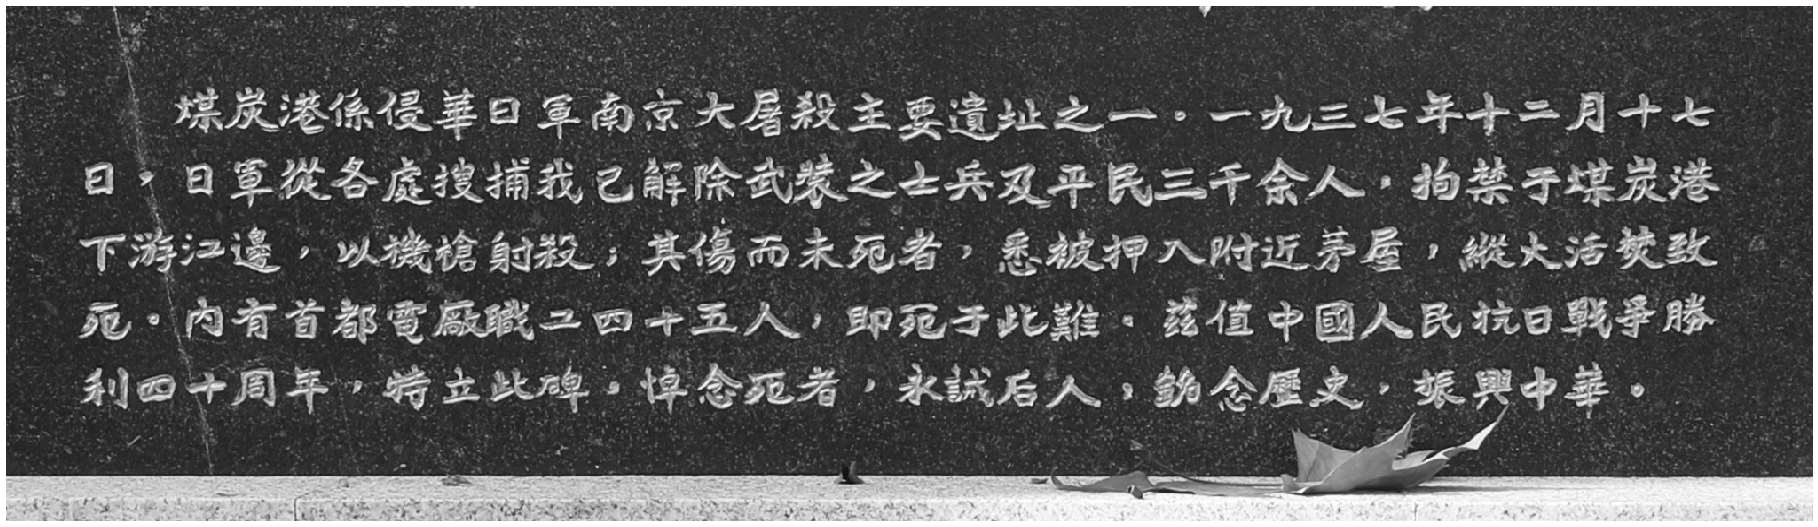 煤炭港係侵華日軍南京大屠殺主要遺址之一。一九三七年十二月十七
日，日軍從各處搜捕我已解除武裝之士兵及平民三千余人，拘禁于煤炭港
下游江邊，以機槍射殺；其傷而未死者，悉被押入附近茅屋，縱火活焚致
死。內有首都電廠職工四十五人，即死于此難。茲值中國人民抗日戰爭勝
利四十周年，特立此碑，悼念死者，永誡后人，銘念歷史，振興中華。